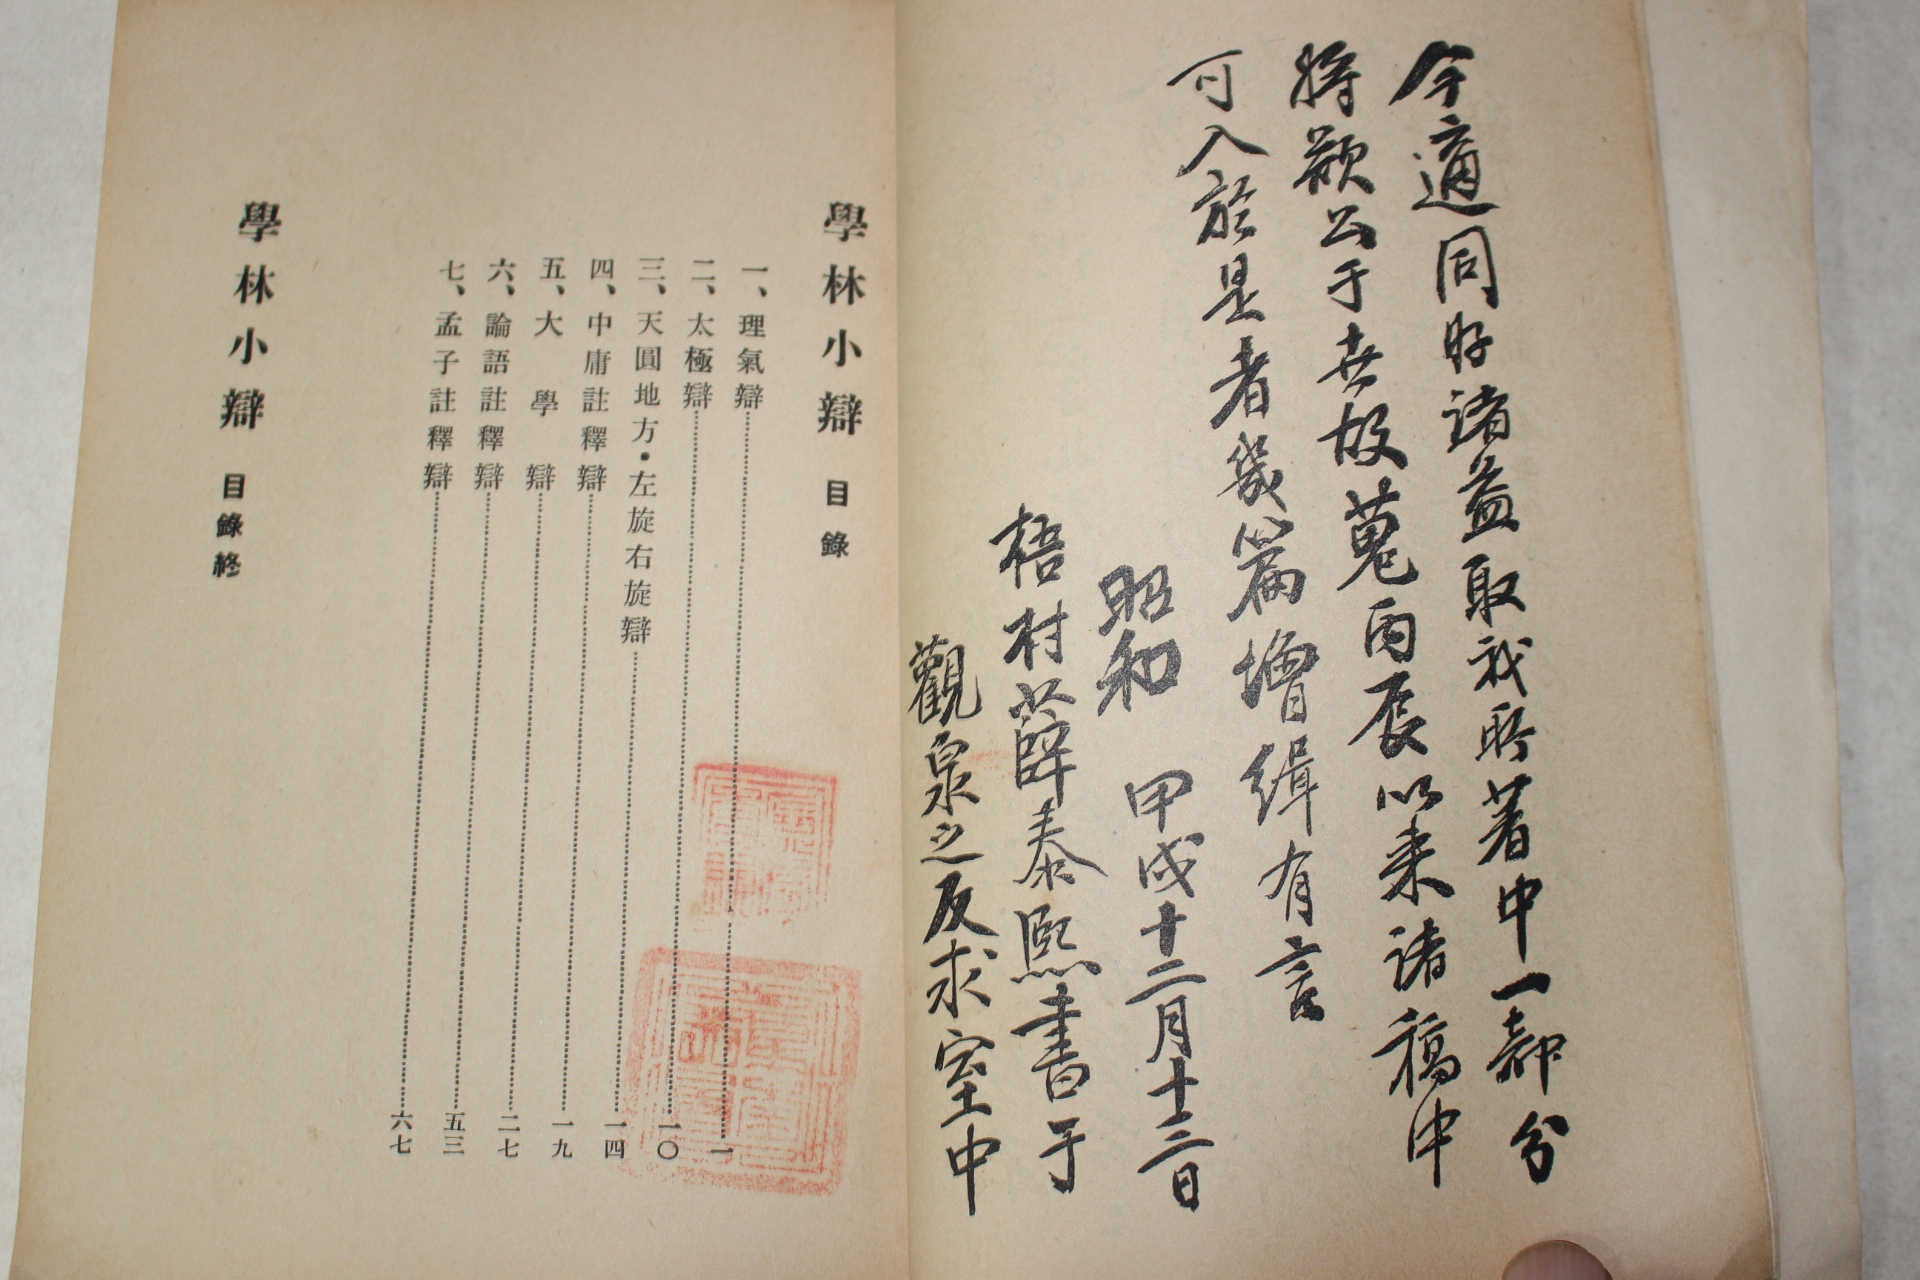 今適同好諸益取我所著中一部分
將欲公于世故蒐丙辰以來諸稿中
可入於是者幾篇增緝有言
昭和 甲戌十二月十二日
梧村 薛泰熙書于
觀泉之反求室中
學林小辯 目錄
一、理氣辯 一
二、太極辯 一〇
三、天圓地方・左旋右旋辯 一四
四、中庸註釋辯 一九
五、大學辯 二七
六、論語註釋辯 五三
七、孟子註釋辯 六七
學林小辯 目錄終